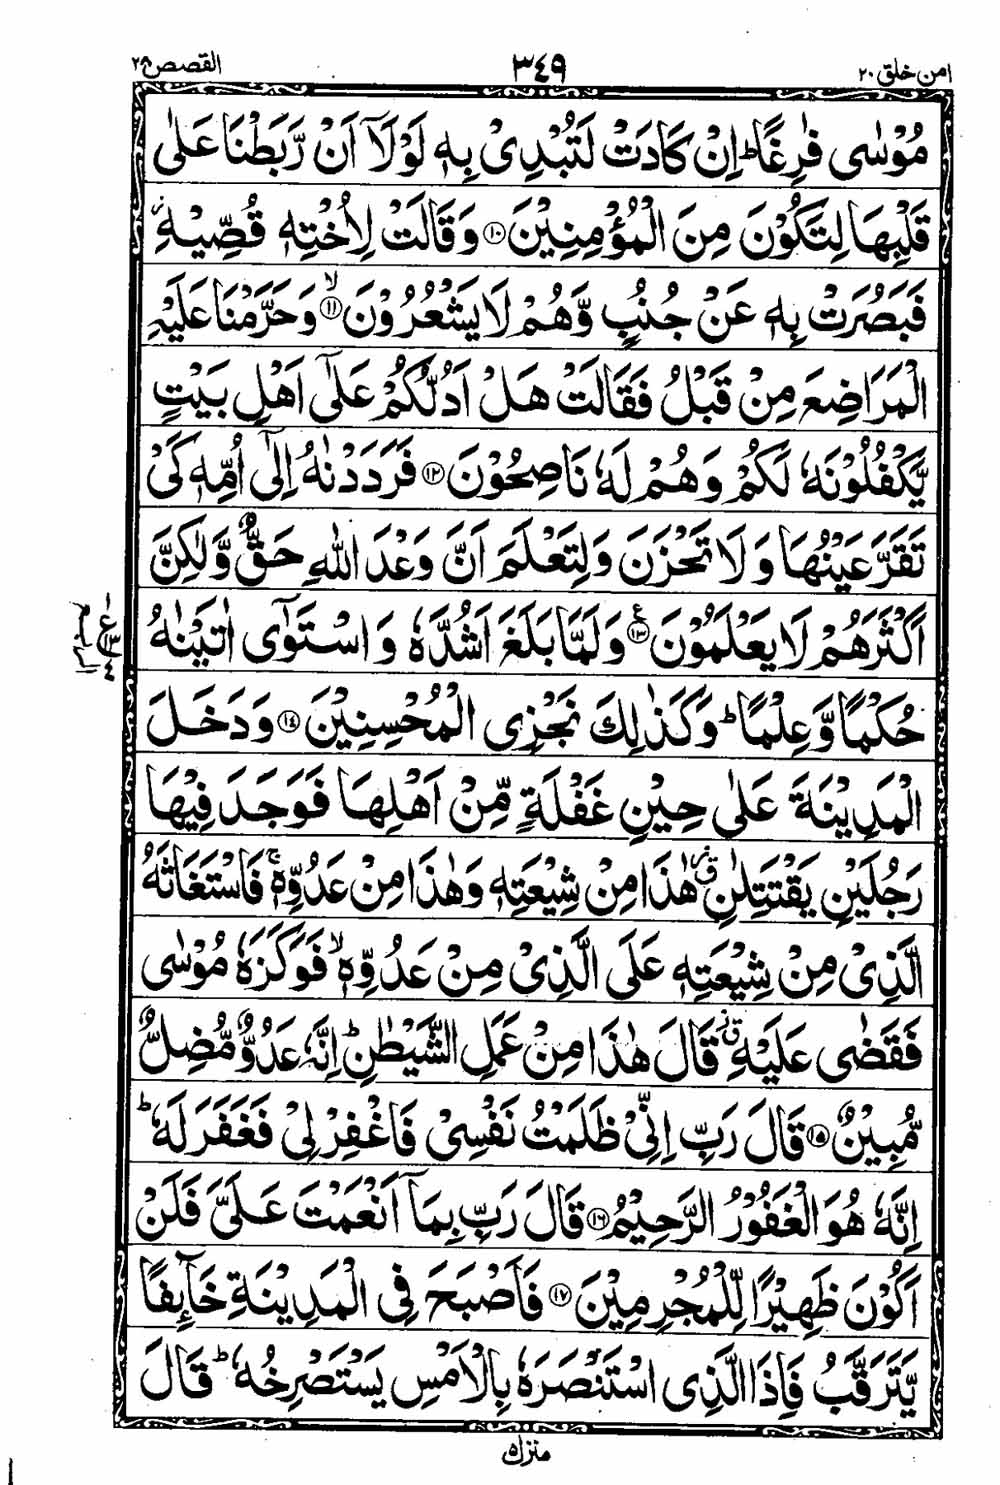 امن خلق ٢٠ ٣٤٩ القصص ٢٨
مُوْسٰى فٰرِغًا ؕ اِنْ كَادَتْ لَتُبْدِىْ بِهٖ لَوْلَاۤ اَنْ رَّبَطْنَا عَلٰى
قَلْبِهَا لِتَكُوْنَ مِنَ الْمُؤْمِنِيْنَ ١٠ وَقَالَتْ لِاُخْتِهٖ قُصِّيْهِ ؗ
فَبَصُرَتْ بِهٖ عَنْ جُنُبٍ وَّهُمْ لَا يَشْعُرُوْنَ ۙ ١١ وَحَرَّمْنَا عَلَيْهِ
الْمَرَاضِعَ مِنْ قَبْلُ فَقَالَتْ هَلْ اَدُلُّكُمْ عَلٰۤى اَهْلِ بَيْتٍ
يَّكْفُلُوْنَهٗ لَكُمْ وَهُمْ لَهٗ نَاصِحُوْنَ ١٢ فَرَدَدْنٰهُ اِلٰۤى اُمِّهٖ كَىْ
تَقَرَّ عَيْنُهَا وَلَا تَحْزَنَ وَلِتَعْلَمَ اَنَّ وَعْدَ اللّٰهِ حَقٌّ وَّلٰكِنَّ
اَكْثَرَهُمْ لَا يَعْلَمُوْنَ ١٣ ع وَلَمَّا بَلَغَ اَشُدَّهٗ وَاسْتَوٰۤى اٰتَيْنٰهُ
حُكْمًا وَّعِلْمًا ؕ وَكَذٰلِكَ نَجْزِى الْمُحْسِنِيْنَ ١٤ وَدَخَلَ
الْمَدِيْنَةَ عَلٰى حِيْنِ غَفْلَةٍ مِّنْ اَهْلِهَا فَوَجَدَ فِيْهَا
رَجُلَيْنِ يَقْتَتِلٰنِ ؗ هٰذَا مِنْ شِيْعَتِهٖ وَهٰذَا مِنْ عَدُوِّهٖ ۚ فَاسْتَغَاثَهُ
الَّذِىْ مِنْ شِيْعَتِهٖ عَلَى الَّذِىْ مِنْ عَدُوِّهٖ ۙ فَوَكَزَهٗ مُوْسٰى
فَقَضٰى عَلَيْهِ ؗ قَالَ هٰذَا مِنْ عَمَلِ الشَّيْطٰنِ ؕ اِنَّهٗ عَدُوٌّ مُّضِلٌّ
مُّبِيْنٌ ١٥ قَالَ رَبِّ اِنِّىْ ظَلَمْتُ نَفْسِىْ فَاغْفِرْ لِىْ فَغَفَرَ لَهٗ ؕ
اِنَّهٗ هُوَ الْغَفُوْرُ الرَّحِيْمُ ١٦ قَالَ رَبِّ بِمَاۤ اَنْعَمْتَ عَلَىَّ فَلَنْ
اَكُوْنَ ظَهِيْرًا لِّلْمُجْرِمِيْنَ ١٧ فَاَصْبَحَ فِى الْمَدِيْنَةِ خَآئِفًا
يَّتَرَقَّبُ فَاِذَا الَّذِى اسْتَنْصَرَهٗ بِالْاَمْسِ يَسْتَصْرِخُهٗ ؕ قَالَ
منزل ٥